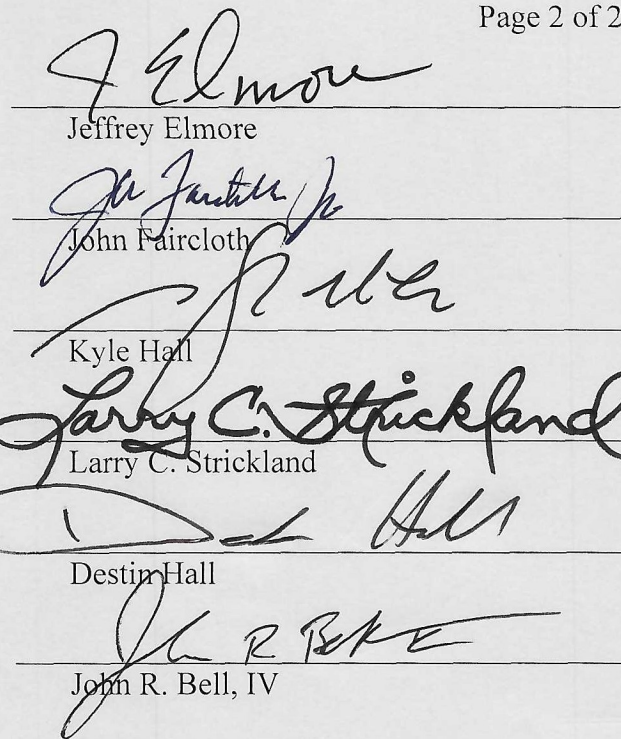 Page 2 of 2
J Elmore
Jeffrey Elmore
John Faircloth
Kyle Hall
Larry C. Strickland
Larry C. Strickland
Destin Hall
John R Bell
John R. Bell, IV